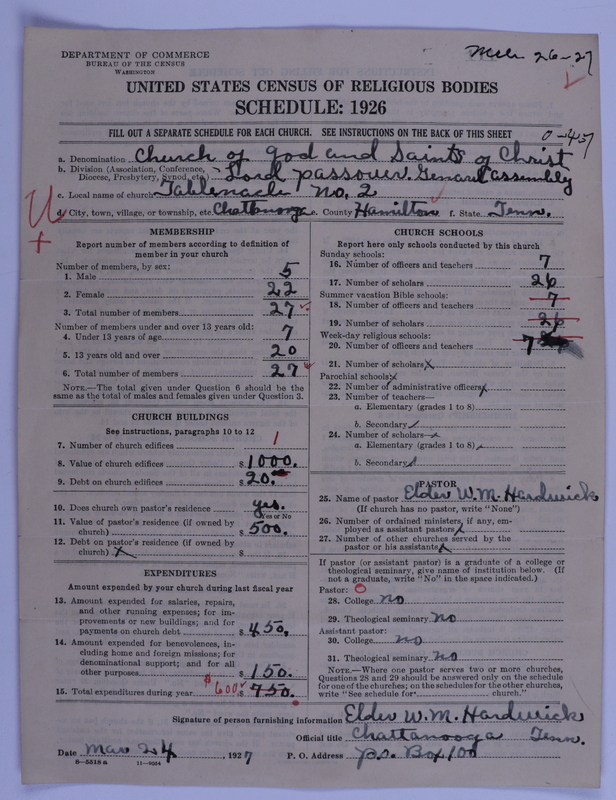 DEPARTMENT OF COMMERCE
BUREAU OF THE CENSUS
WASHINGTON
26-27
UNITED STATES CENSUS OF RELIGIOUS BODIES
SCHEDULE: 1926
FILL OUT A SEPARATE SCHEDULE FOR EACH CHURCH. SEE INSTRUCTIONS ON THE BACK OF THIS SHEET
0-457
a. Denomination Church of God and Saints of Christ
b. Division (Association, Conference, Diocese, Presbytery, Synod, etc.) Lord passover. General assembly
c. Local name of church Tabbernacle No, 2
d. City, town, village, or township, etc. Chattanooga e. County Hamilton f. State Tenn.
MEMBERSHIP
Report number of members according to definition of
member in your church
Number of members, by sex:
1. Male 5
2. Female 22
3. Total number of members 27
Number of members under and over 13 years old:
4. Under 13 years of age 7
5. 13 years old and over 20
6. Total number of members 27
NOTE.—The total given under Question 6 should be the
same as the total of males and females given under Question 3.
CHURCH BUILDINGS
See instructions, paragraphs 10 to 12
7. Number of church edifices 1
8. Value of church edifices $1000.
9. Debt on church edifices $20.
10. Does church own pastor's residence yes.
Yes or No
11. Value of pastor's residence (if owned by
church) $500.
12. Debt on pastor's residence (if owned by
church) x $
EXPENDITURES
Amount expended by your church during last fiscal year
13. Amount expended for salaries, repairs,
and other running expenses; for im-
provements or new buildings; and for
payments on church debt $450.
14. Amount expended for benevolences, in-
cluding home and foreign missions; for
denominational support; and for all
other purposes $150.
15. Total expenditures during year $600 $750.
CHURCH SCHOOLS
Report here only schools conducted by this church
Sunday schools:
16. Number of officers and teachers 7
17. Number of scholars 26
Summer vacation Bible schools:
18. Number of officers and teachers 7
19. Number of scholars 26
Week-day religious schools:
20. Number of officers and teachers 7
21. Number of scholars x
Parochial schools: x
22. Number of administrative officers
23. Number of teachers—
a. Elementary (grades 1 to 8)
b. Secondary
24. Number of scholars—
a. Elementary (grades 1 to 8)
b. Secondary
PASTOR
25. Name of pastor Elder W.M. Hardwick
(If church has no pastor, write "None")
26. Number of ordained ministers, if any, em-
ployed as assistant pastors
27. Number of other churches served by the
pastor or his assistants x
If pastor (or assistant pastor) is a graduate of a college or
theological seminary, give name of institution below. (If
not a graduate, write "No" in the space indicated.)
Pastor: O
28. College no
29. Theological seminary no
Assistant pastor:
30. College no
31. Theological seminary no
NOTE.—Where one pastor serves two or more churches,
Questions 28 and 29 should be answered only on the schedule
for one of the churches; on the schedules for the other churches,
write "See schedule for church."
Signature of person furnishing information Elder W.M. Hardwick
Official title Chattanooga Tenn.
Date Mar 24, 1927 P. O. Address p.o. Box 100
8—5519 a 11—9034